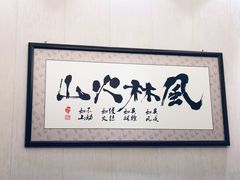 風林火山
其疾
如風
其徐
如林
侵掠
如火
不動
如山